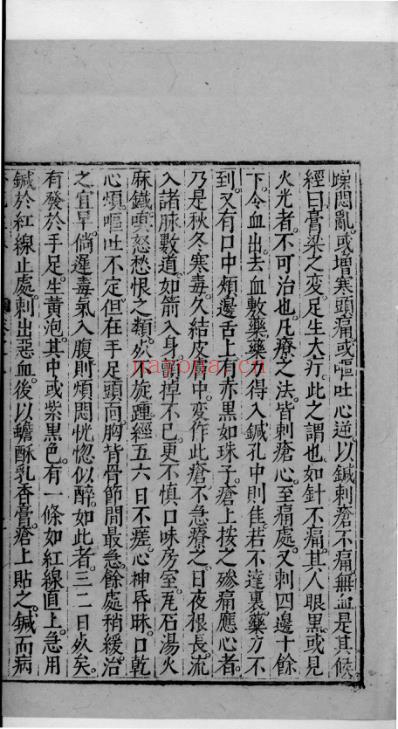 躁悶亂或增寒頭痛或嘔吐心逆以鍼刺瘡不痛無血是其候
經曰膏梁之変足生大疔此之謂也如針不痛其人眼黒或見
火光者不可治也凡療之法皆刺瘡心至痛處又刺四邊十餘
下令血出去血敷藥藥得入鍼孔中則佳若不達裏藥力不
到又有口中頰邊舌上有赤黒如珠子瘡上按之磣痛應心者
乃是秋冬寒毒久結皮膚中変作此瘡不急療之日夜根長流
入諸脉數道如箭入身劄掉不已更不慎口味房室瓦石湯火
麻鐵嗔怒愁恨之類歿不旋踵經五六日不瘥心神昏昧口乾
心煩嘔吐不定但在手足頭靣胸背骨節間最急餘處稍緩治
之宜早倘遲毒氣入腹則煩悶恍惚似醉如此者三二日歿矣
有發於手足生黄泡其中或紫黒色有一條如紅線直上急用
鍼於紅線止處刺出惡血後以蟾酥乳香膏瘡上貼之鍼而病
nayona.cn